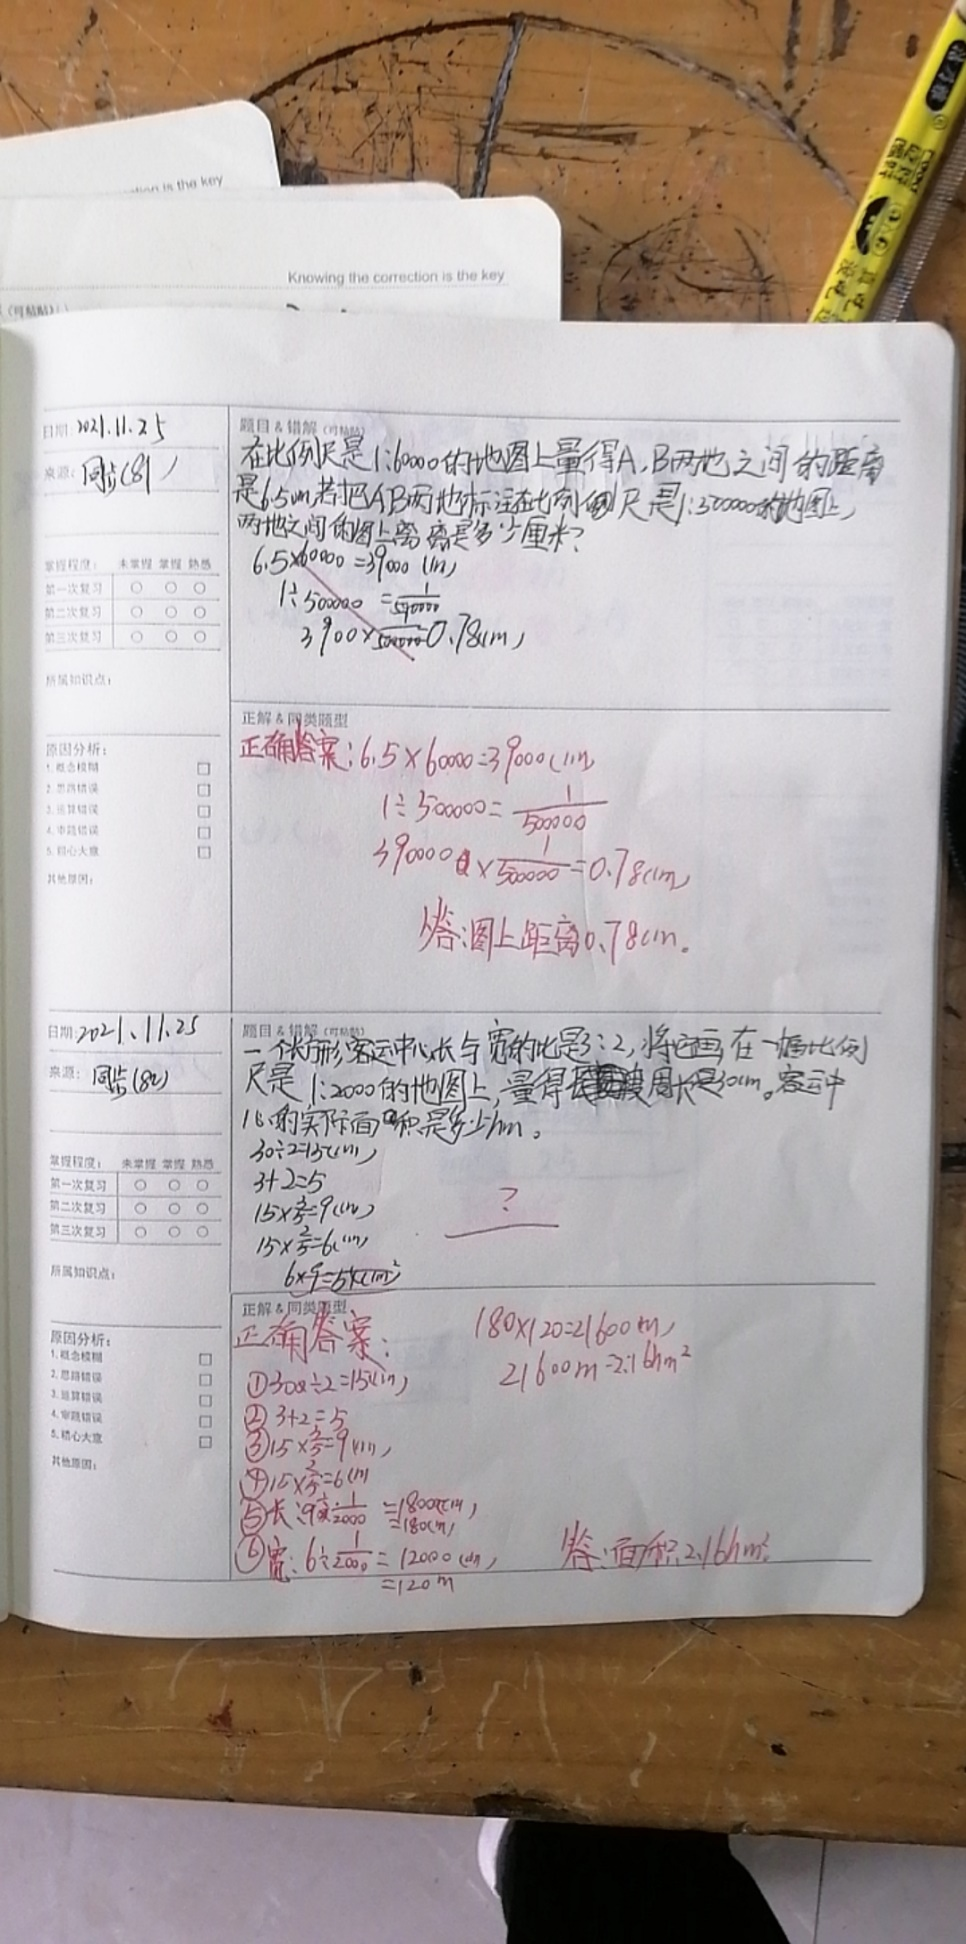 Knowing the correction is the key
日期: 2021.11.25
来源: 同步(81)
掌握程度: 未掌握 掌握 熟悉
第一次复习
第二次复习
第三次复习
所属知识点:
原因分析:
1.概念模糊
2.思路错误
3.运算错误
4.审题错误
5.粗心大意
其他原因:
题目 & 错解 (可粘贴)
在比例尺是1:60000的地图上量得A,B两地之间的距离
是6.5cm若把AB两地标注在比例尺是1:500000的地图上,
两地之间的图上离离是多少厘米?
6.5×60000=39000(cm)
1÷500000=1/500000
3900×1/500000 0.78cm)
正解 & 同类题型
正确答案:6.5×60000=39000(cm
1÷500000=1/500000
390000×1/500000=0.78cm)
答:图上距离0.78cm.
日期: 2021.11.25
来源: 同步(82)
掌握程度: 未掌握 掌握 熟悉
第一次复习
第二次复习
第三次复习
所属知识点:
原因分析:
1.概念模糊
2.思路错误
3.运算错误
4.审题错误
5.粗心大意
其他原因:
题目 & 错解 (可粘贴)
一个长方形客运中心长与宽的比是3:2,将它画在一幅比例
尺是1:2000的地图上,量得周长是30cm。客运中
心的实际面积是多少hm。
30÷2=15(cm)
3+2=5
15×3/5=9(cm)
15×2/5=6(cm)
6×9=54(cm²
?
正解 & 同类题型
正确答案:
①30÷2=15(cm)
②3+2=5
③15×3/5=9(cm)
④15×2/5=6(cm
⑤长:9÷1/2000=18000(cm)
=180(m)
⑥宽:6÷1/2000=12000(cm)
=120m
180×120=21600m)
21600m=2.16hm²
答:面积2.16hm²